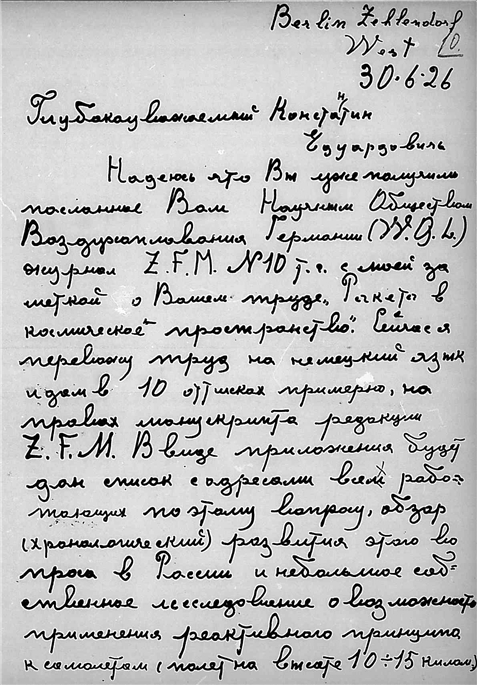 Berlin Zehlendorf
West
30·6·26
Глубокоуважаемый Константин
Едуардович
Надеюсь что Вы уже получили
посланное Вам Научным Обществом
Воздухоплавания Германии (W.G.L.)
журнал Z.F.M. №10 т.е. с моей за
меткой о Вашем труде „Ракета в
космическое пространство". Сейчас я
перевожу труд на немецкий язык
и дам в 10 оттисках примерно, на
правах манускрипта редакции
Z.F.M. В виде приложения будет
дан список с адресами всех рабо-
тающих по этому вопросу, обзор
(хронологический) развития этого во
проса в России и небольшое соб-
ственное исследование о возможность
применения реактивного принципа
к самолетам (полет на высоте 10÷15 килом.)